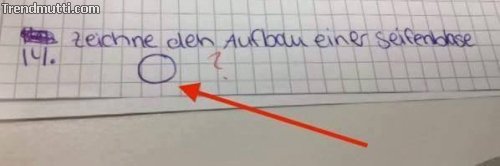 Trendmutti.com
zeichne den Aufbau einer Seifenblase
14.
?